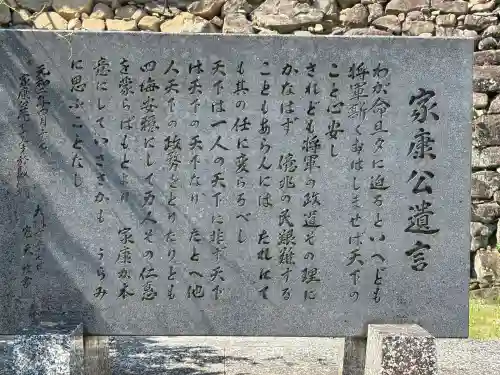 家康公遺言
わが命旦夕に迫るといへども
将軍斯くおはしませば天下の
こと心安し
されども将軍の政道その理に
かなはず 億兆の民艱難する
こともあらんには たれにても
其の任に変らるべし
天下は一人の天下に非ず 天下
は天下の天下なり たとへ他
人天下の政務をとりたりとも
四海安穏にして万人その仁恵
を蒙らばもとより 家康が本
意にしていささかも うらみ
に思ふことなし